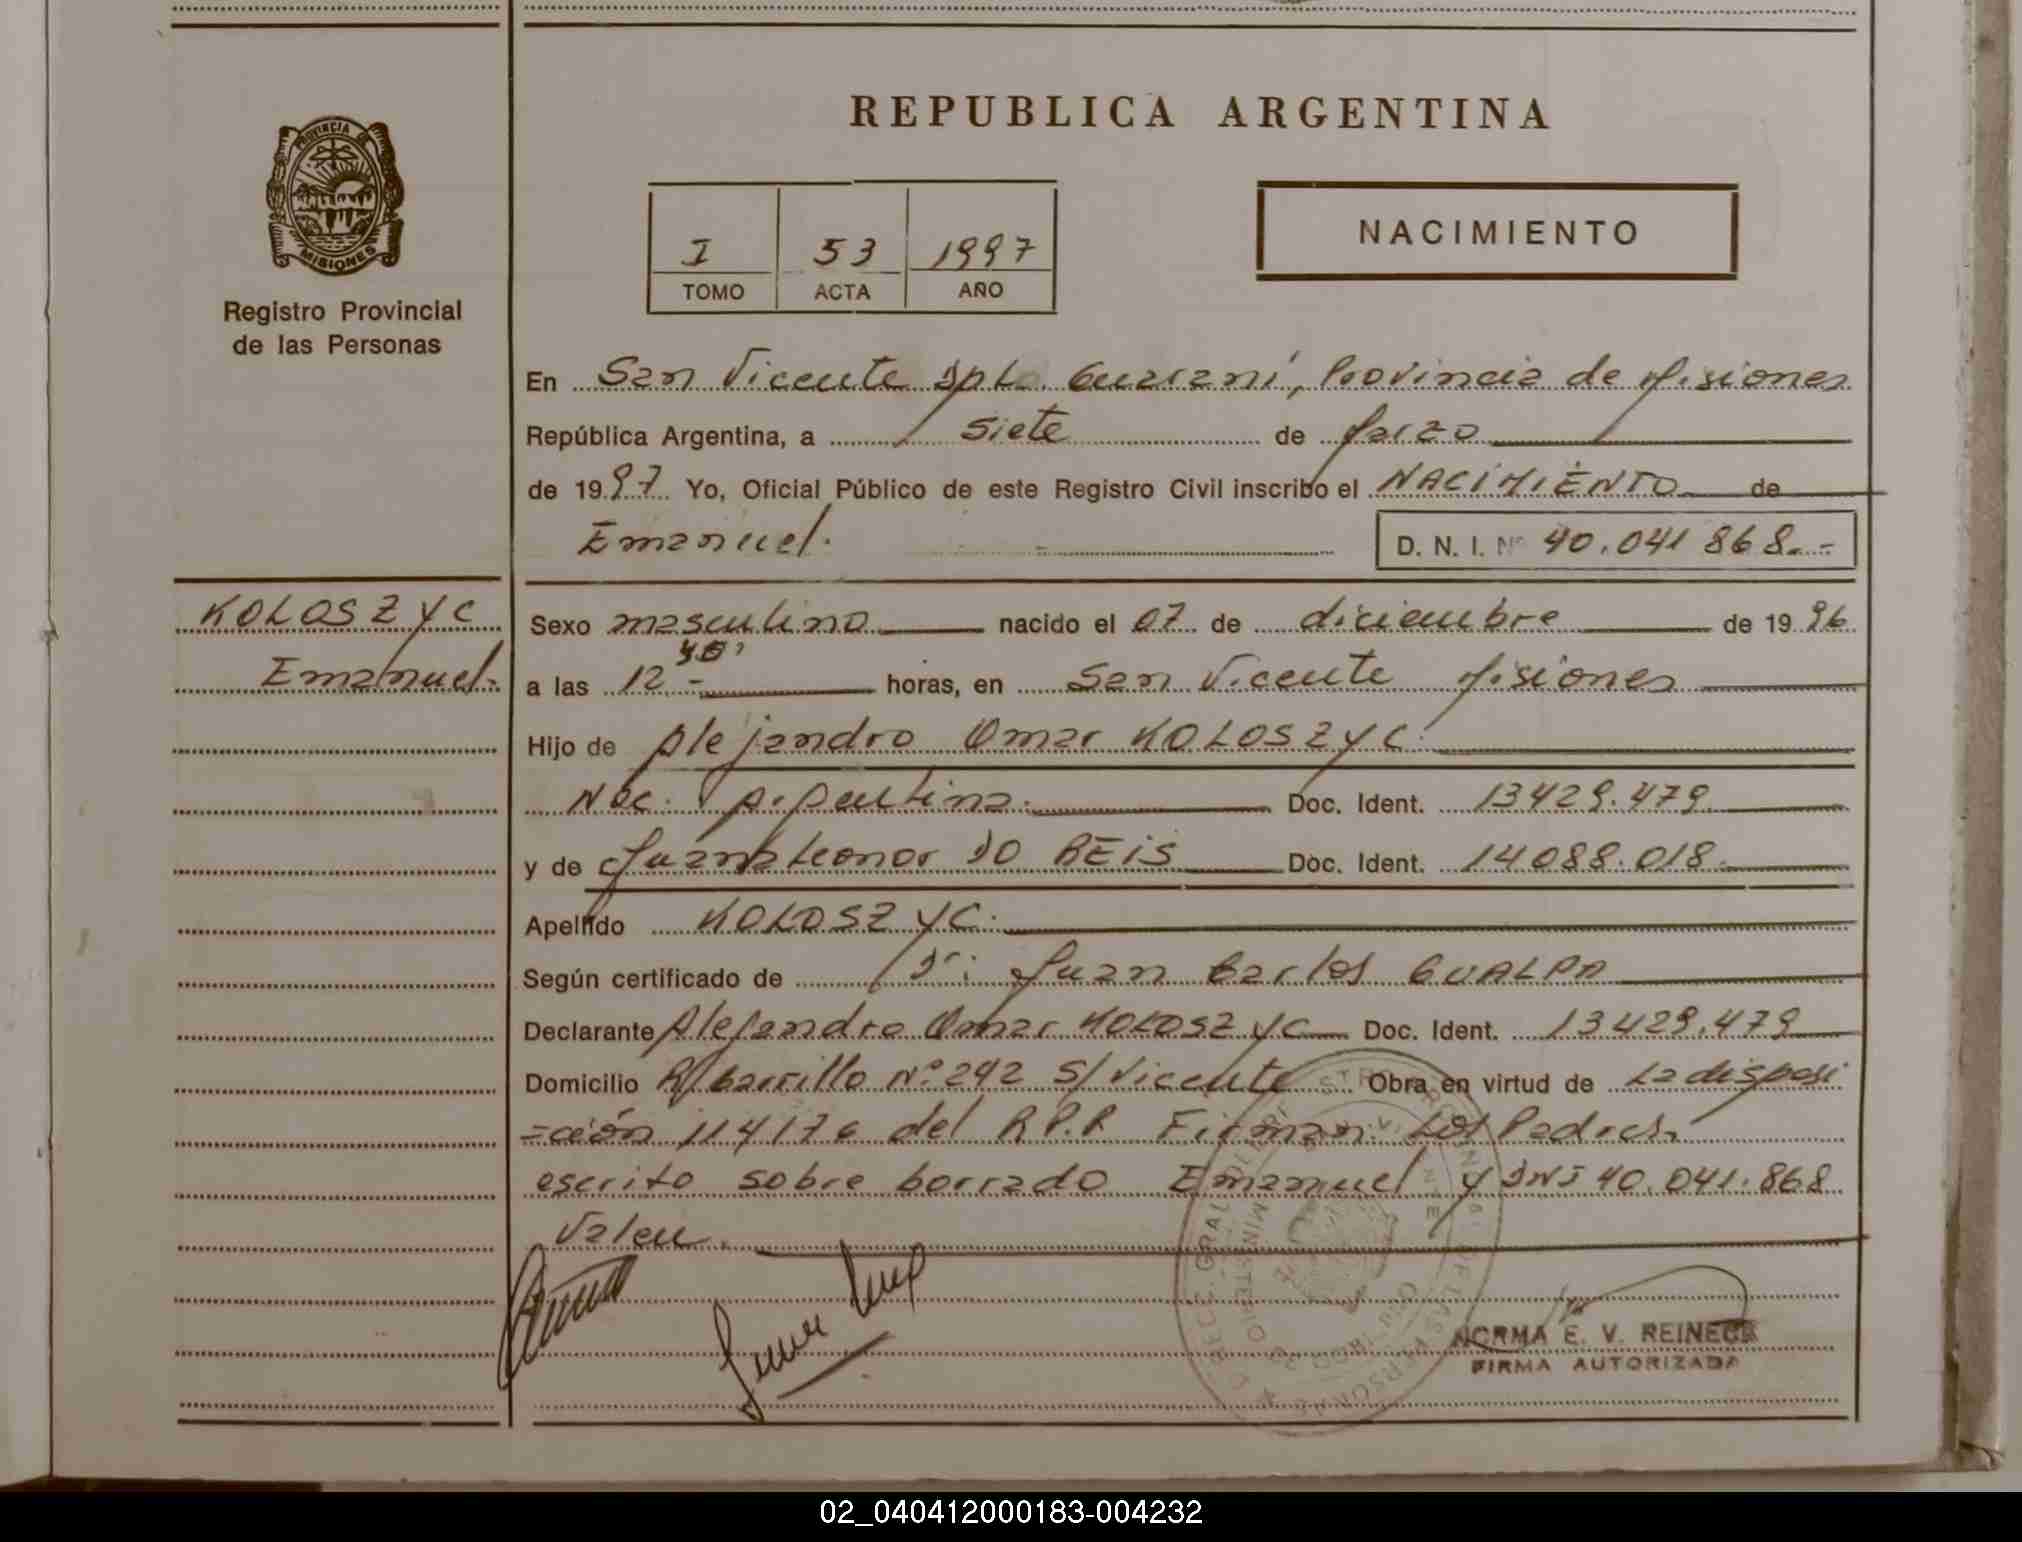 REPUBLICA ARGENTINA
PROVINCIA DE
MISIONES
Registro Provincial
de las Personas
NACIMIENTO
I 53 1997
TOMO ACTA AÑO
En San Vicente Dpto. Guaraní, Provincia de Misiones
República Argentina, a siete de Marzo
de 1997 Yo, Oficial Público de este Registro Civil inscribo el NACIMIENTO de
Emanuel.
D. N. I. Nº 40.041 868.-
KOLOSZYC
Emanuel.
Sexo masculino nacido el 07 de diciembre de 1996
a las 12 horas, en San Vicente Misiones
Hijo de Alejandro Omar KOLOSZYC.
Nac. Argentina. Doc. Ident. 13429.479
y de Juana Leonor DO REIS Doc. Ident. 14088.018.
Apellido KOLOSZYC.
Según certificado de Dr: Juan Carlos GUALPA
Declarante Alejandro Omar KOLOSZYC Doc. Ident. 13429.479
Domicilio R/Carrillo Nº 242 S/Vicente Obra en virtud de La disposi
=ción del R.P.P. Firman Los Padres.
escrito sobre borrado Emanuel y DNI 40.041.868
Valen.
NORMA E. V. REINECK
FIRMA AUTORIZADA
02_040412000183-004232